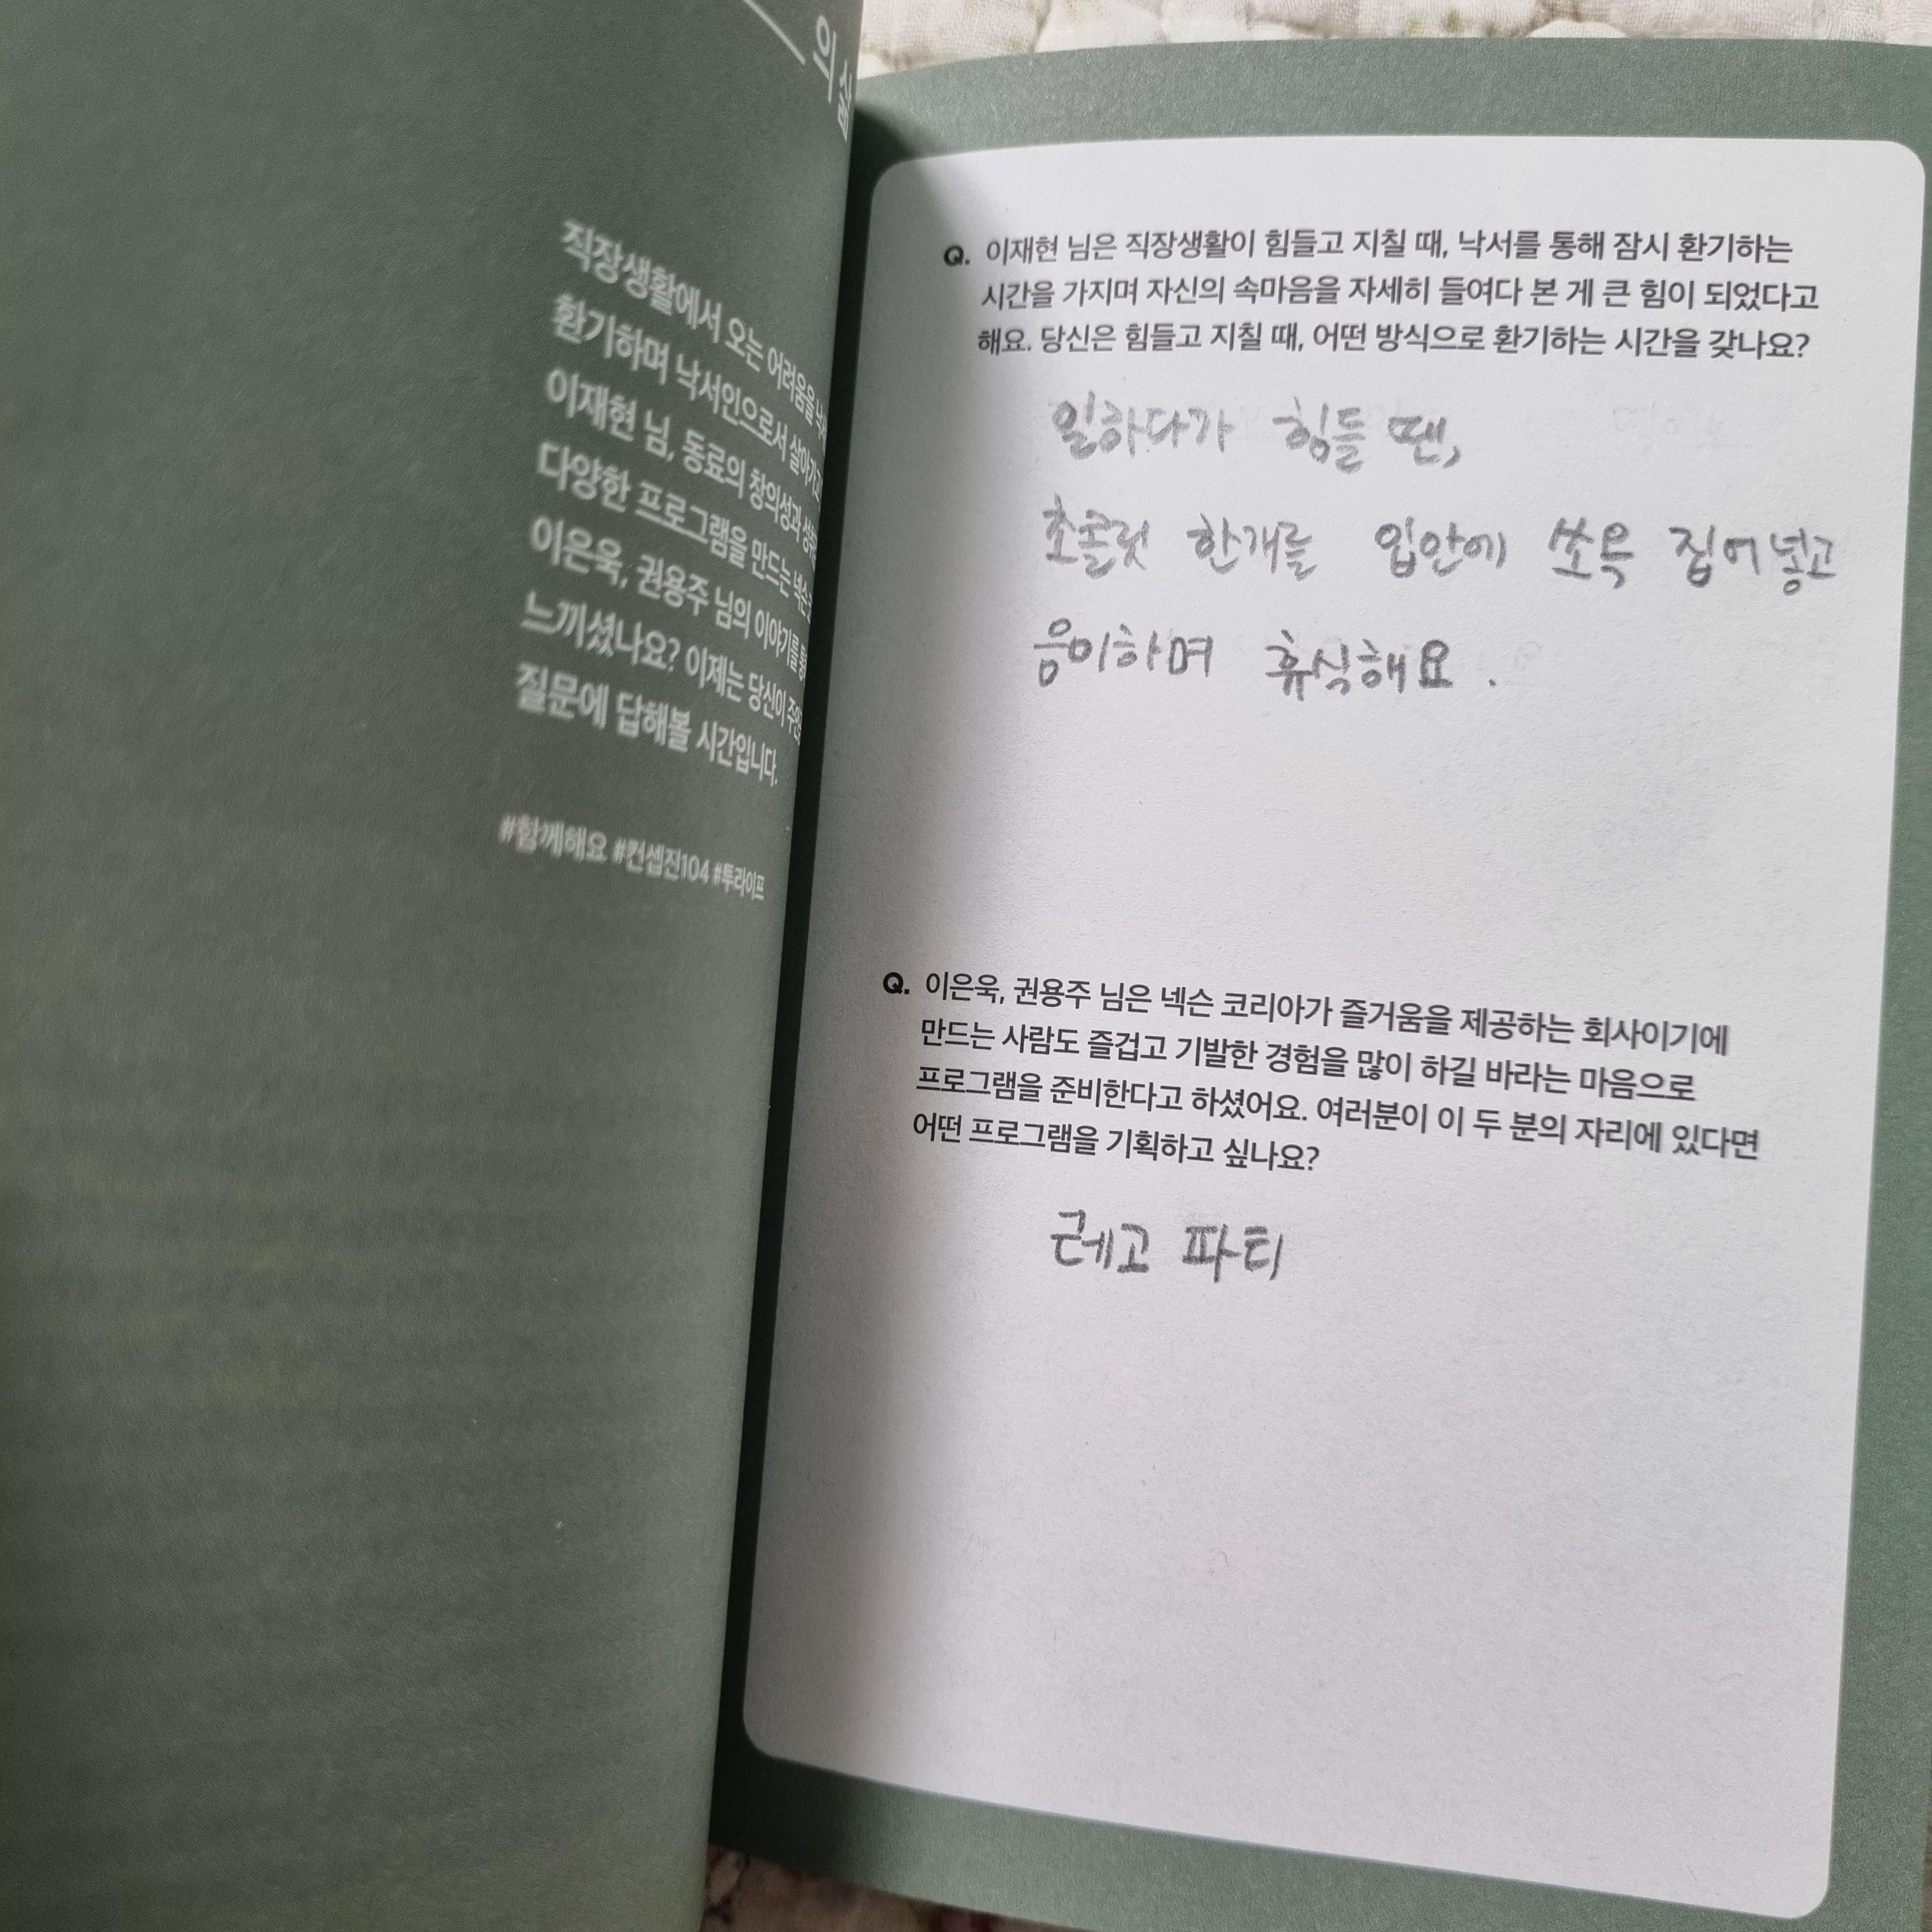 의 삶
직장생활에서 오는 어려움을
환기하며 낙서인으로서 살아가고
이재현 님, 동료의 창의성과
다양한 프로그램을 만드는 넥슨
이은욱, 권용주 님의 이야기를
느끼셨나요? 이제는 당신이
질문에 답해볼 시간입니다.
#함께해요 #컨셉진104 #투라이프
Q. 이재현 님은 직장생활이 힘들고 지칠 때, 낙서를 통해 잠시 환기하는
시간을 가지며 자신의 속마음을 자세히 들여다 본 게 큰 힘이 되었다고
해요. 당신은 힘들고 지칠 때, 어떤 방식으로 환기하는 시간을 갖나요?
일하다가 힘들 땐,
초콜릿 한개를 입안에 쏘옥 집어넣고
음미하며 휴식해요.
Q. 이은욱, 권용주 님은 넥슨 코리아가 즐거움을 제공하는 회사이기에
만드는 사람도 즐겁고 기발한 경험을 많이 하길 바라는 마음으로
프로그램을 준비한다고 하셨어요. 여러분이 이 두 분의 자리에 있다면
어떤 프로그램을 기획하고 싶나요?
레고 파티